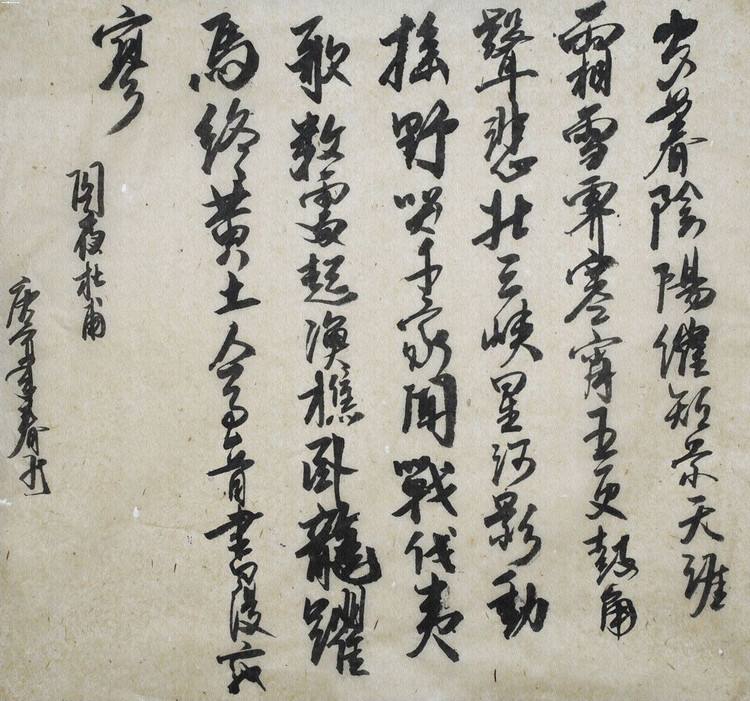 歲暮陰陽催短景天涯
霜雪霽寒宵五更鼓角
聲悲壯三峽星河影動
搖野哭千家聞戰伐夷
歌數處起漁樵臥龍躍
馬終黃土人事音書漫寂
寥
閣夜杜甫
庚寅年春